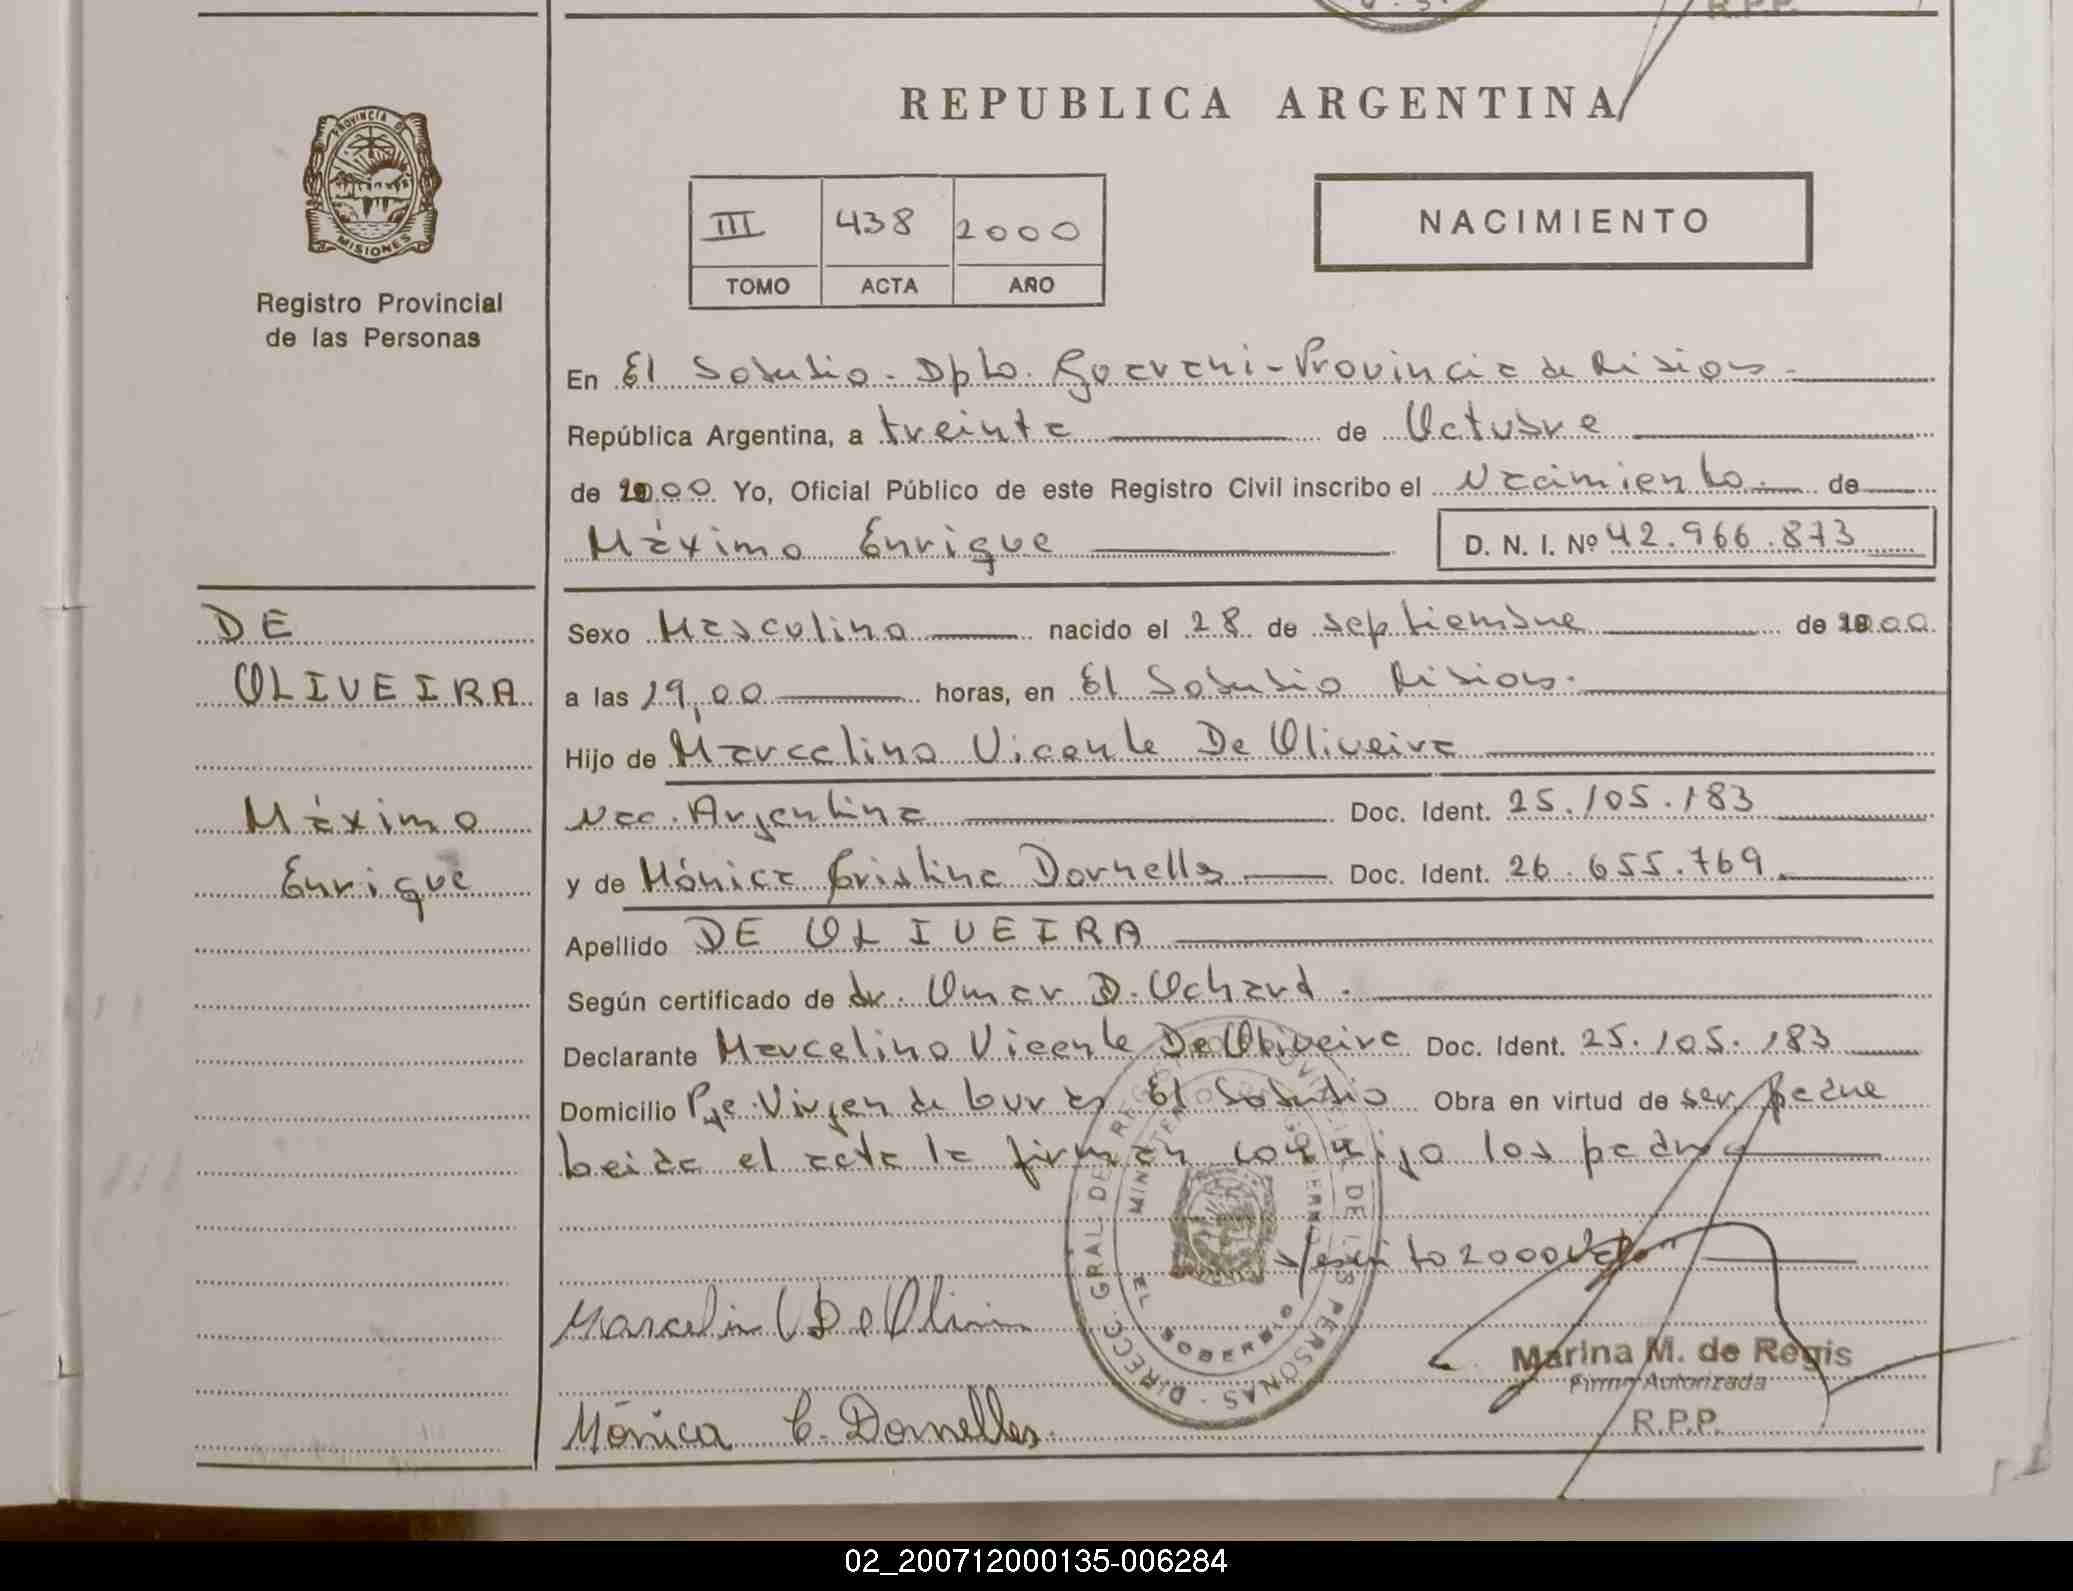 R.P.P.
REPUBLICA ARGENTINA
PROVINCIA DE
MISIONES
Registro Provincial
de las Personas
III 438 2000
TOMO ACTA AÑO
NACIMIENTO
En El Soberbio - Dpto. Guarani - Provincia de Misiones -
República Argentina, a treinta de Octubre
de 2000 Yo, Oficial Público de este Registro Civil inscribo el Nacimiento. de
Máximo Enrique D. N. I. Nº 42.966.873
DE
OLIVEIRA
Máximo
Enrique
Sexo Masculino nacido el 28 de septiembre de 2000
a las 19,00 horas, en El Soberbio Misiones.
Hijo de Marcelino Vicente De Oliveira
Nac. Argentina Doc. Ident. 25.105.183
y de Mónica Cristina Dornelles Doc. Ident. 26.655.769
Apellido DE OLIVEIRA
Según certificado de dr. Omar D. Ochard.
Declarante Marcelino Vicente De Oliveira Doc. Ident. 25.105.183
Domicilio Pje. Virgen de Lurdes El Soberbio Obra en virtud de ser padre
Leida el acta la firman conmigo los padres
2000
Marcelin V De Olivei
Mónica C. Dornelles.
DIRECC. GRAL. DE REGISTRO PROVINCIAL DE LAS PERSONAS
MINISTERIO DE GOBIERNO
EL SOBERBIO
Marina M. de Regis
Firma Autorizada
R.P.P.
02_200712000135-006284